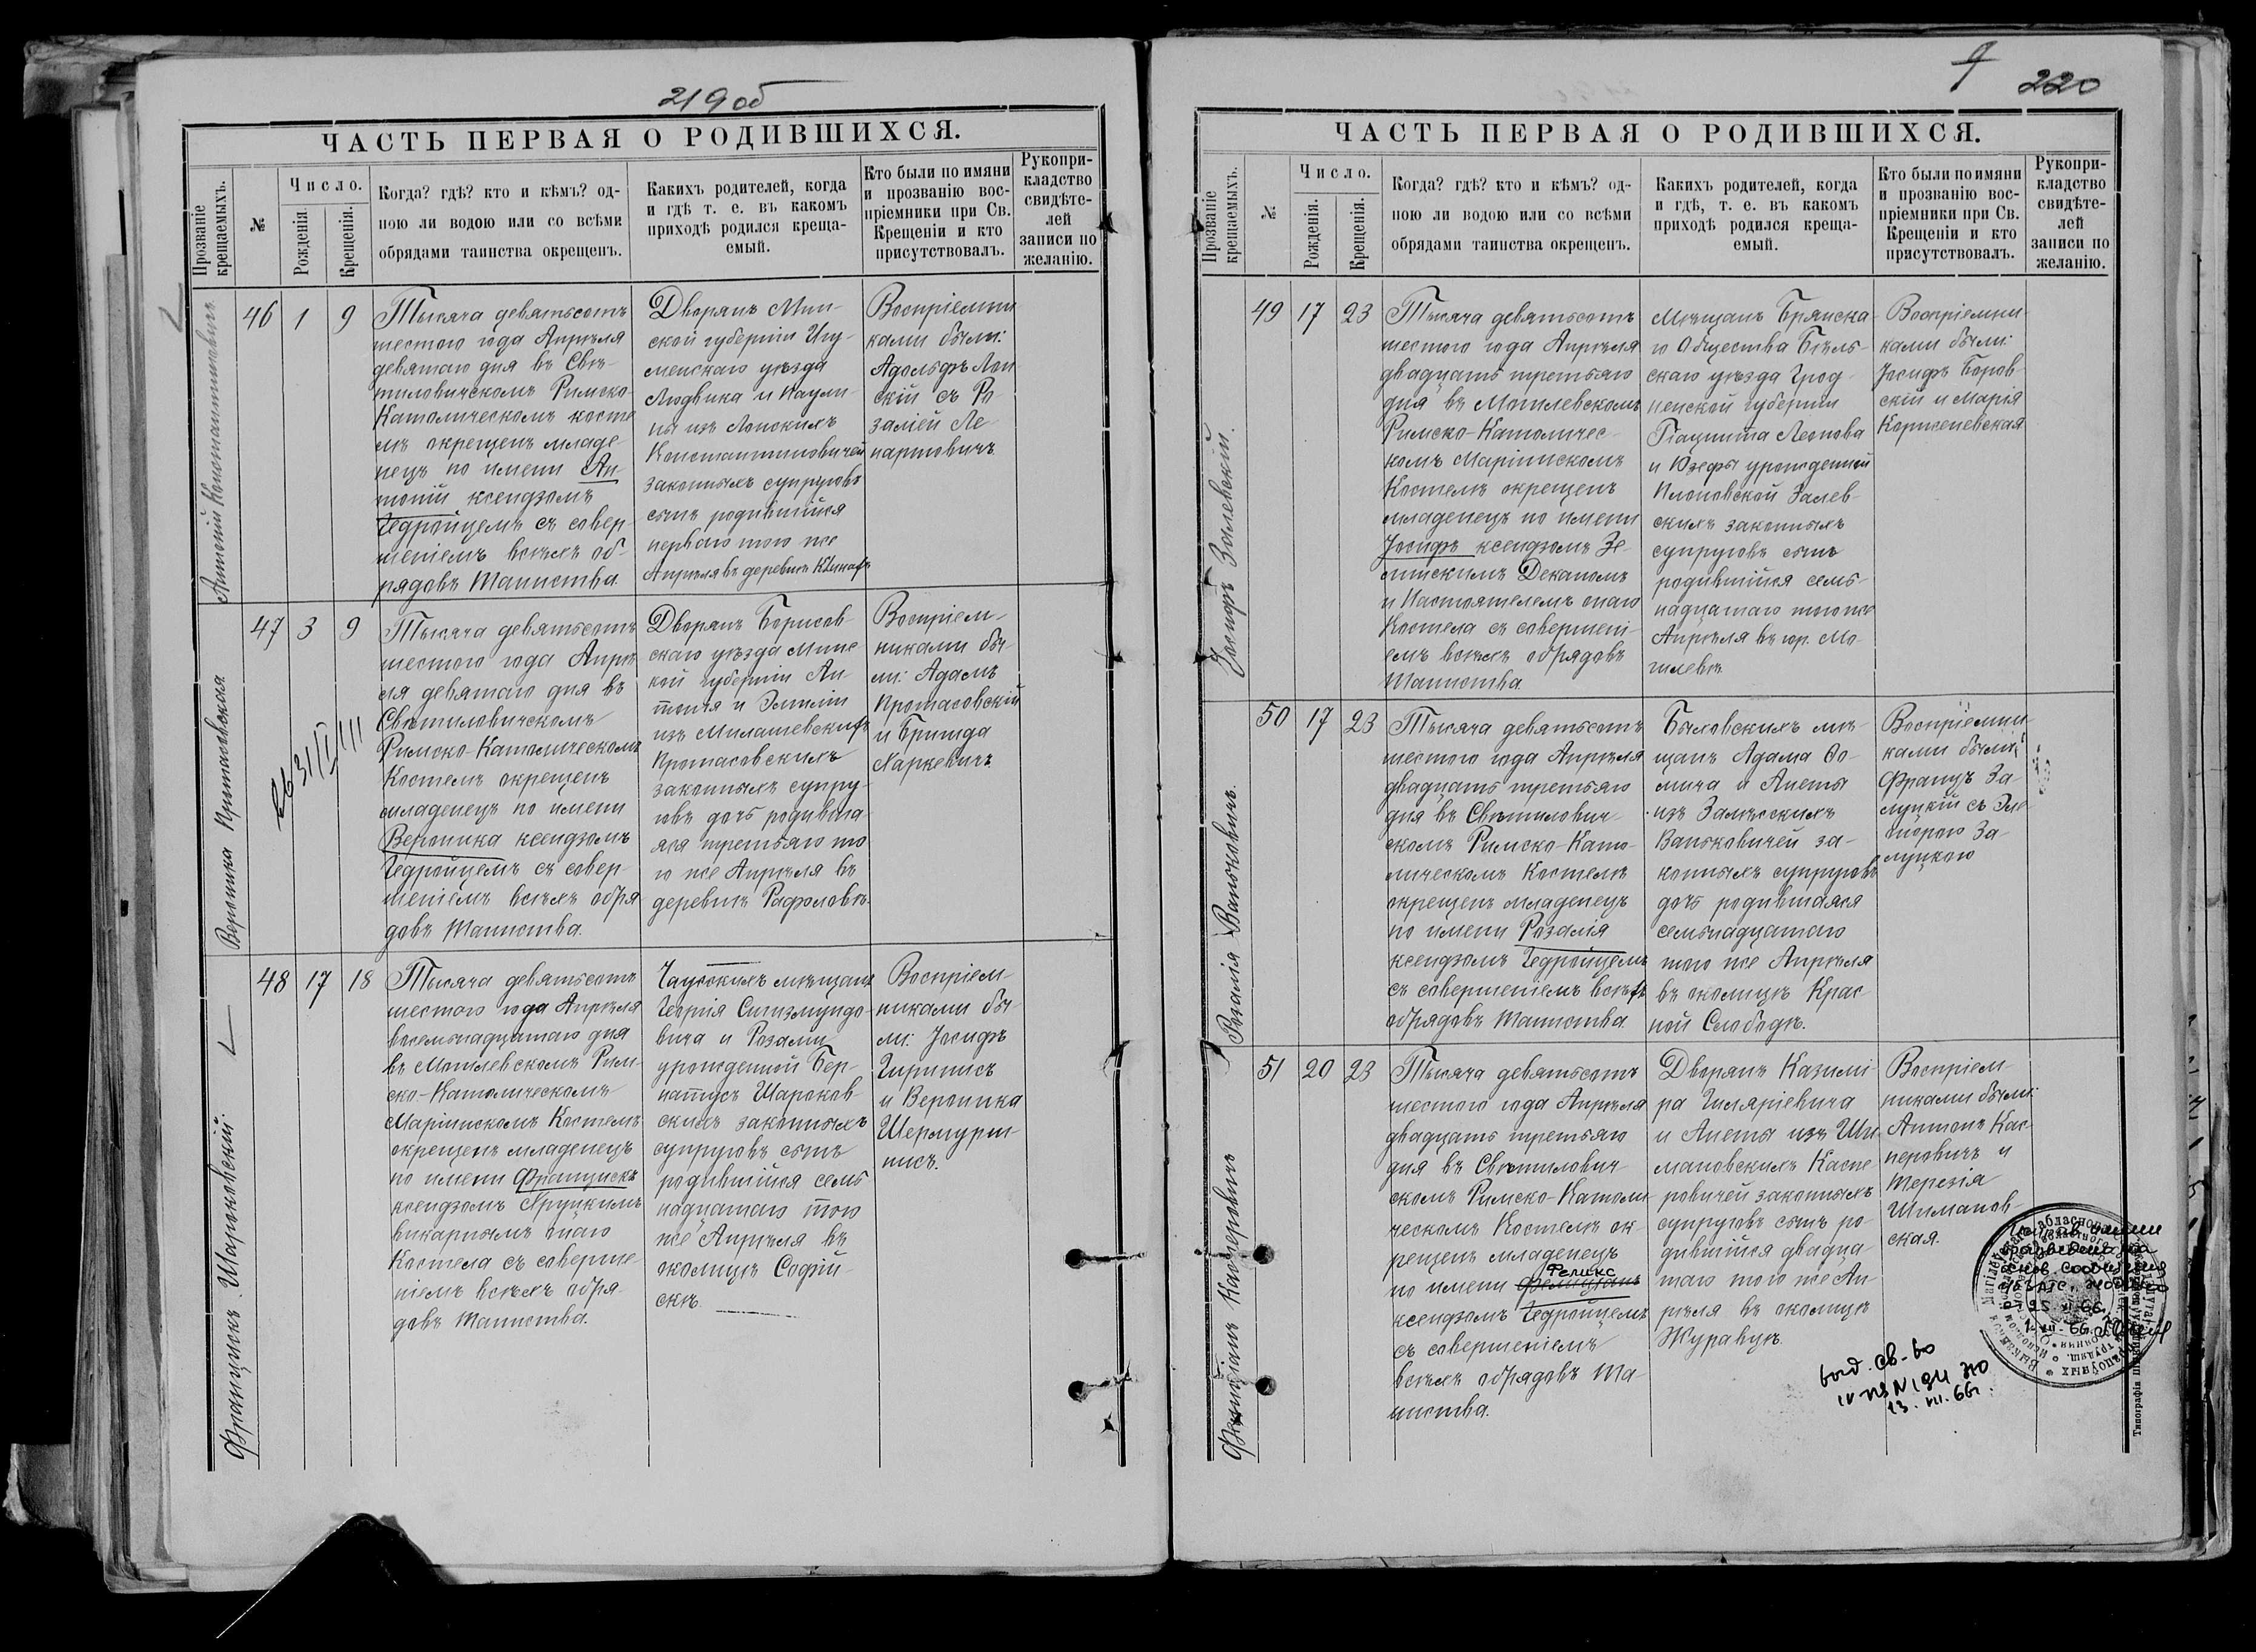 219 об
ЧАСТЬ ПЕРВАЯ О РОДИВШИХСЯ.
Прозваніе крещаемыхъ.
№
Число.
Рожденія.
Крещенія.
Когда? гдѣ? кто и кѣмъ? од-
ною ли водою или со всѣми
обрядами таинства окрещенъ.
Какихъ родителей, когда
и гдѣ т. е. въ какомъ
приходѣ родился креща-
емый.
Кто были по имяни
и прозванію вос-
пріемники при Св.
Крещеніи и кто
присутствовалъ.
Рукопри-
кладство
свидѣте-
лей
записи по
желанію.
Антоній Константиновичъ
46 1 9
Тысяча девятьсотъ
шестого года Апрѣля
девятаго дня въ Свѣ-
тиловичскомъ Римско-
Католическомъ косте
лѣ окрещенъ младе-
нецъ по имени Ан-
тоній ксендзомъ
Гедройцемъ съ совер-
шеніемъ всѣхъ об-
рядовъ Таинства.
Дворянъ Мин-
ской губерніи Игу-
менскаго уѣзда
Людвика и Паули-
ны изъ Лонскихъ
Константиновичей
законныхъ супруговъ
сынъ родившійся
перваго того же
Апрѣля въ деревнѣ
Воспріемни
ками были:
Адольфъ Лон
скій съ Ро
заліей Ле-
нартовичъ
Вероника Протасовская
47 3 9
Тысяча девятьсотъ
шестого года Апрѣ
ля девятаго дня въ
Свѣтиловичскомъ
Римско-Католическомъ
Костелѣ окрещенъ
младенецъ по имени
Вероника ксендзомъ
Гедройцемъ съ совер-
шеніемъ всѣхъ обря
довъ Таинства.
Дворянъ Борисов-
скаго уѣзда Минс
кой губерніи Ан-
тонія и Эмиліи
изъ Милашевскихъ
Протасовскихъ
законныхъ супру-
говъ дочь родивша-
яся третьяго то
го же Апрѣля въ
деревнѣ Рафоловѣ.
Воспріем-
никами бы-
ли: Адамъ
Протасовскій
и Бригида
Харкевичъ
Францискъ Шароковскій.
48 17 18
Тысяча девятьсотъ
шестого года Апрѣля
восемьнадцатаго дня
въ Могилевскомъ Рим-
ско-Католическомъ
Маріинскомъ Костелѣ
окрещенъ младенецъ
по имени Францискъ
ксендзомъ Яруцкимъ
викарнымъ онаго
Костела съ соверше-
ніемъ всѣхъ обря-
довъ Таинства.
Чаусскихъ мѣщанъ
Георгія Сигизмундо-
вича и Розаліи
урожденной Бер-
натусъ Шароков
скихъ законныхъ
супруговъ сынъ
родившійся семь
надцатаго того
же Апрѣля въ
околицѣ Софій-
скѣ.
Воспріем-
никами бы-
ли: Іосифъ
Гиринисъ
и Вероника
9 220
ЧАСТЬ ПЕРВАЯ О РОДИВШИХСЯ.
Прозваніе крещаемыхъ.
№
Число.
Рожденія.
Крещенія.
Когда? гдѣ? кто и кѣмъ? од-
ною ли водою или со всѣми
обрядами таинства окрещенъ.
Какихъ родителей, когда
и гдѣ, т. е. въ какомъ
приходѣ родился креща-
емый.
Кто были по имяни
и прозванію вос-
пріемники при Св.
Крещеніи и кто
присутствовалъ.
Рукопри-
кладство
свидѣте-
лей
записи по
желанію.
Іосифъ Залевскій.
49 17 23
Тысяча девятьсотъ
шестого года Апрѣля
двадцать третьяго
дня въ Могилевскомъ
Римско-Католичес-
комъ Маріинскомъ
Костелѣ окрещенъ
младенецъ по имени
Іосифъ ксендзомъ Зе-
линскимъ Деканомъ
и Настоятелемъ онаго
Костела съ совершені-
емъ всѣхъ обрядовъ
Таинства.
Мѣщанъ Брянска-
го Общества Бѣль-
скаго уѣзда Грод-
ненской губерніи
Гіацинта Леонова
и Юзефы урожденной
Плоновской Залев-
скихъ законныхъ
супруговъ сынъ
родившійся семь-
надцатаго того же
Апрѣля въ гор. Мо-
гилевѣ.
Воспріемни-
ками были:
Іосифъ Боров-
скій и Марія
Корженевская
Розалія Ваньковичъ.
50 17 23
Тысяча девятьсотъ
шестого года Апрѣля
двадцать третьяго
дня въ Свѣтилович-
скомъ Римско-Като-
лическомъ Костелѣ
окрещенъ младенецъ
по имени Розалія
ксендзомъ Гедройцемъ
съ совершеніемъ всѣхъ
обрядовъ Таинства.
Быховскихъ мѣ-
щанъ Адама Ѳо-
мича и Анеты
изъ Залѣсскихъ
Ваньковичей за-
конныхъ супруговъ
дочь родившаяся
семьнадцатаго
того же Апрѣля
въ околицѣ Крас-
ной Слободѣ.
Воспріемни-
ками были:
Францъ За-
луцкій съ Эле-
онорою За-
луцкою
Каспровичъ
51 20 23
Тысяча девятьсотъ
шестого года Апрѣля
двадцать третьяго
дня въ Свѣтилович-
скомъ Римско-Католи
ческомъ Костелѣ ок-
рещенъ младенецъ
Феликс
по имени
ксендзомъ Гедройцемъ
съ совершеніемъ
всѣхъ обрядовъ Та-
инства.
Дворянъ Казими-
ра Гиляріевича
и Анеты изъ Ши
мановскихъ Каспе-
ровичей законныхъ
супруговъ сынъ ро-
дившійся двадца-
таго того же Ап-
рѣля въ околицѣ
Журавцѣ.
Воспріем
никами были:
Антонъ Кас-
перовичъ и
Терезія
Шиманов-
ская.
выд. св-во
13. VII. 66г.